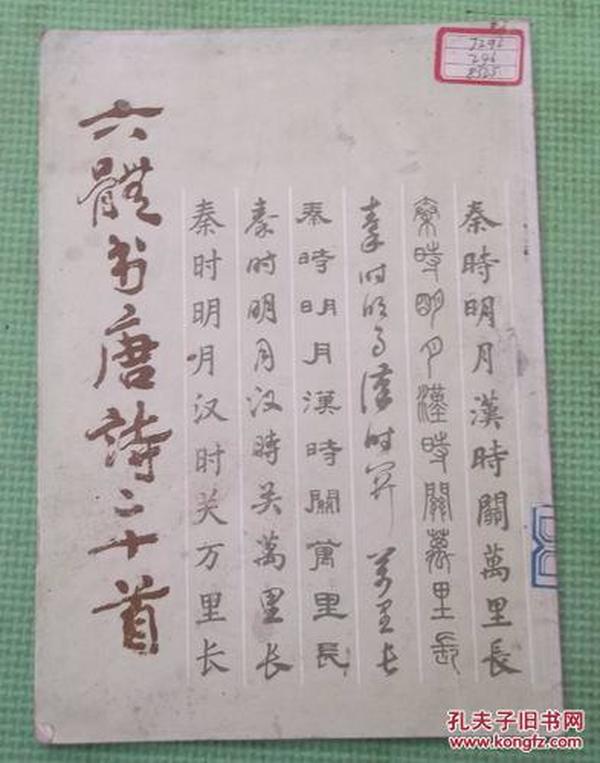 秦時明月漢時關萬里長
秦時明月漢時關萬里長
秦时明月漢时关万里长
秦時明月漢時關萬里長
秦时明月汉時关萬里长
秦时明月汉时关万里长
六體书唐詩二十首
孔夫子旧书网
www.kongfz.com